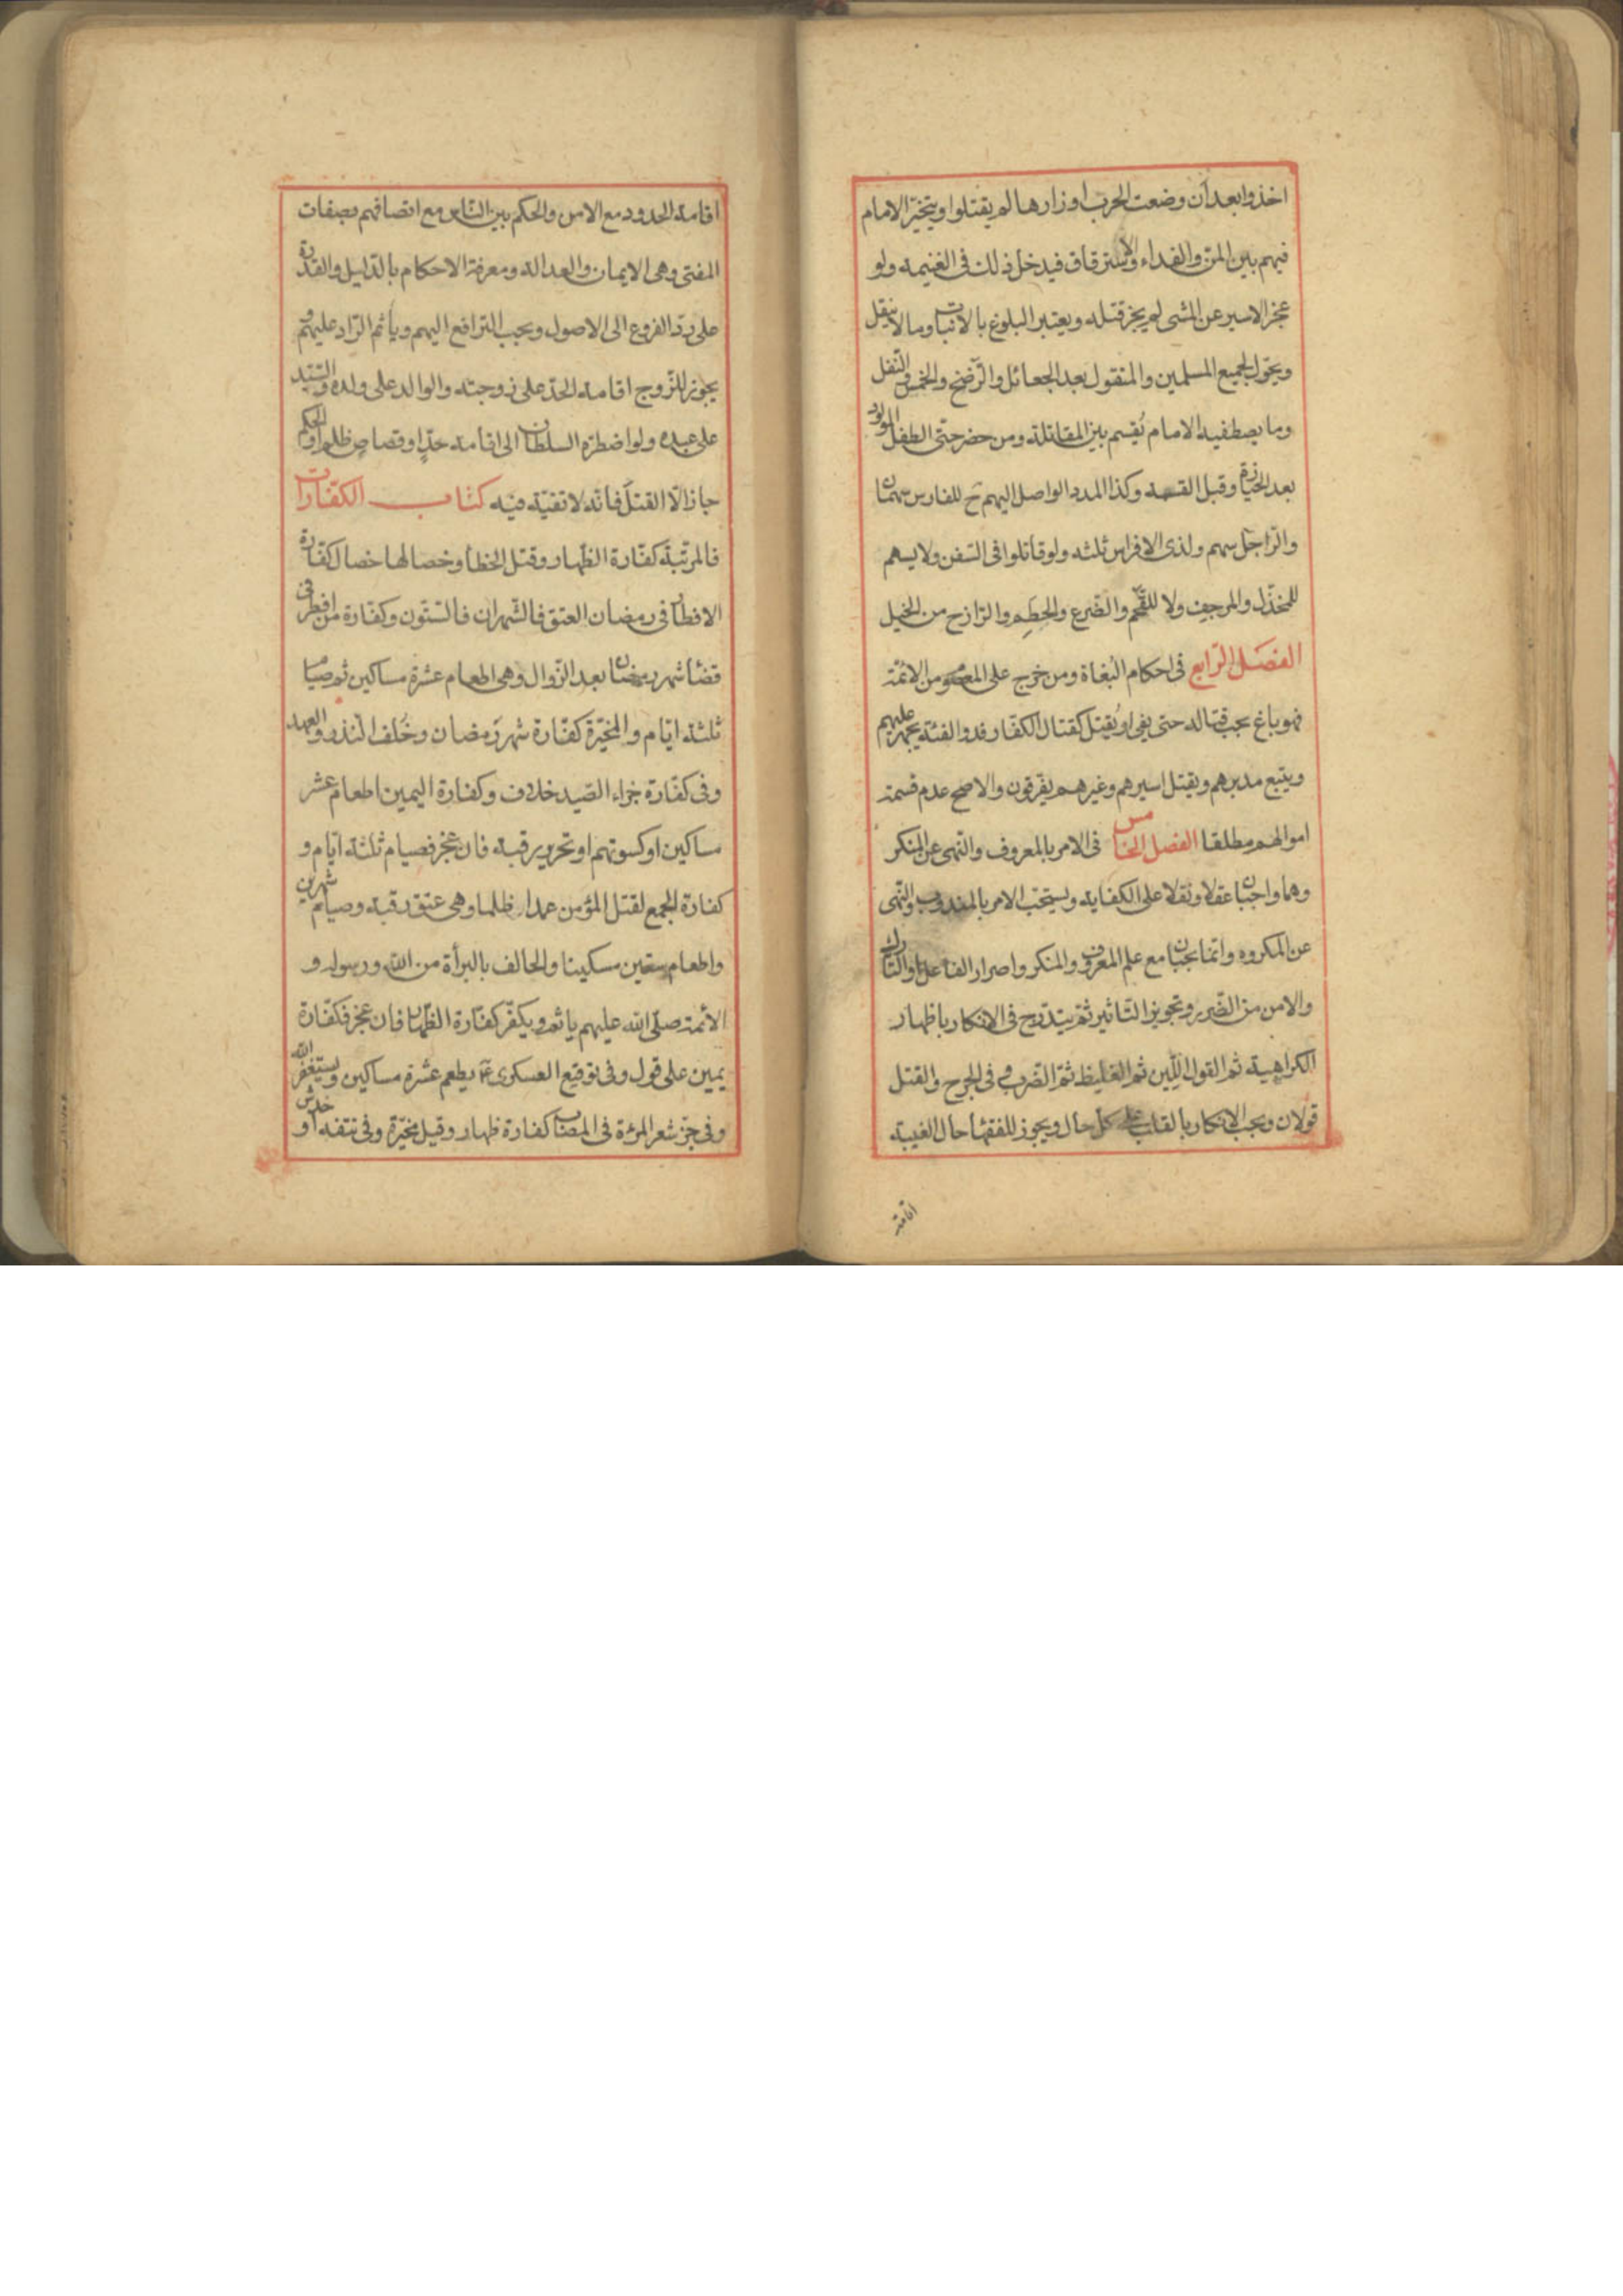 اخذوا بعد ان وضعت الحرب اوزارها لم يقتلوا ويتخيّر الامام
فيهم بين المنّ والفداء والاسترقاق فيدخل ذلك فى الغنيمه ولو
عجز الاسير عن المشى لم يجز قتله ويعتبر البلوغ بالانبات وما لا ينقل
ويحوّل لجميع المسلمين والمنقول بعد الجعائل والرّضخ والخمس والنّفل
وما يصطفيه الامام يُقسم بين المقاتلة ومن حضر حتّى الطفل المولود
بعد الحيازة وقبل القسمة وكذا المدد الواصل اليهم ح للفارس سهمان
والرّاجل سهم ولذى الافراس ثلثه ولو قاتلوا فى السّفن ولا يسهم
للمخذّل والمرجف ولا للقَحْم والضّرع والحَطِم والرّازح من الخيل
الفصل الرّابع فى احكام البُغاة ومن خرج على المعصوم من الائمّة
فهو باغ يجب قتاله حتى يفئ او يُقتل كقتال الكفّار فذو الفئة يجهز عليهم
ويتبع مدبرهم ويقتل اسيرهم وغيرهم يفرّقون والاصح عدم قسمة
اموالهم مطلقا الفصل الخامس فى الامر بالمعروف والنّهى عن المنكر
وهما واجبان عقلا ونقلا على الكفايه ويستحّب الامر بالمندوب والنّهى
عن المكروه وانّما يجبان مع علم المعروف والمنكر واصرار الفاعل او التارك
والامن من الضّرر وتجويز التّاثير ثمّ يتدرّج فى الانكار باظهار
الكراهية ثم القول اللّين ثم الغليظ ثمّ الضّرب وفى الجرح والقتل
قولان ويجب الانكار بالقلب على كلّ حال ويجوز للفقهاء حال الغيبة
اقامة
اقامة الحدود مع الامن والحكم بين النّاس مع اتصافهم بصفات
المفتى وهى الايمان والعدالة ومعرفة الاحكام بالدّليل والقدرة
على ردّ الفروع الى الاصول ويجب الترافع اليهم وياثم الرّاد عليهم و
يجوز للزّوج اقامة الحدّ على زوجته والوالد على ولده والسّيّد
على عبده ولو اضطرّه السلطان الى اقامة حدّ او قصاص ظلما او الحكم
جاز الّا القتل فانّه لا تقيّة فيه كتاب الكفّارات
فالمرتّبة كفّارة الظّهار وقتل الخطأ وخصالها خصال كفّارة
الافطار فى رمضان العتق فالشّهران فالسّتّون وكفّارة من افطر فى
قضاء شهر رمضان بعد الزّوال وهى اطعام عشرة مساكين ثم صيام
ثلثة ايّام والمخيّرة كفّارة شهر رَمضان وخُلف النّذر والعهد
وفى كفّارة جزاء الصّيد خلاف وكفّارة اليمين اطعام عشر
مساكين او كسوتهم او تحرير رقبة فان عجز فصيام ثلثة ايّام و
كفارة الجمع لقتل المؤمن عمدا ظلما وهى عتق رقبة وصيام شهرين
واطعام ستين مسكينا والحالف بالبرأة من الله ورسوله و
الأئمّة صلّى الله عليهم ياثم ويكفّر كفّارة الظّهار فان عجز فكفّارة
يمين على قول وفى توقيع العسكرى ع يطعم عشرة مساكين ويستغفر الله
وفى جزّ شعر المرءة فى المصاب كفارة ظهار وقيل مخيّرة وفى نتفه او خدش